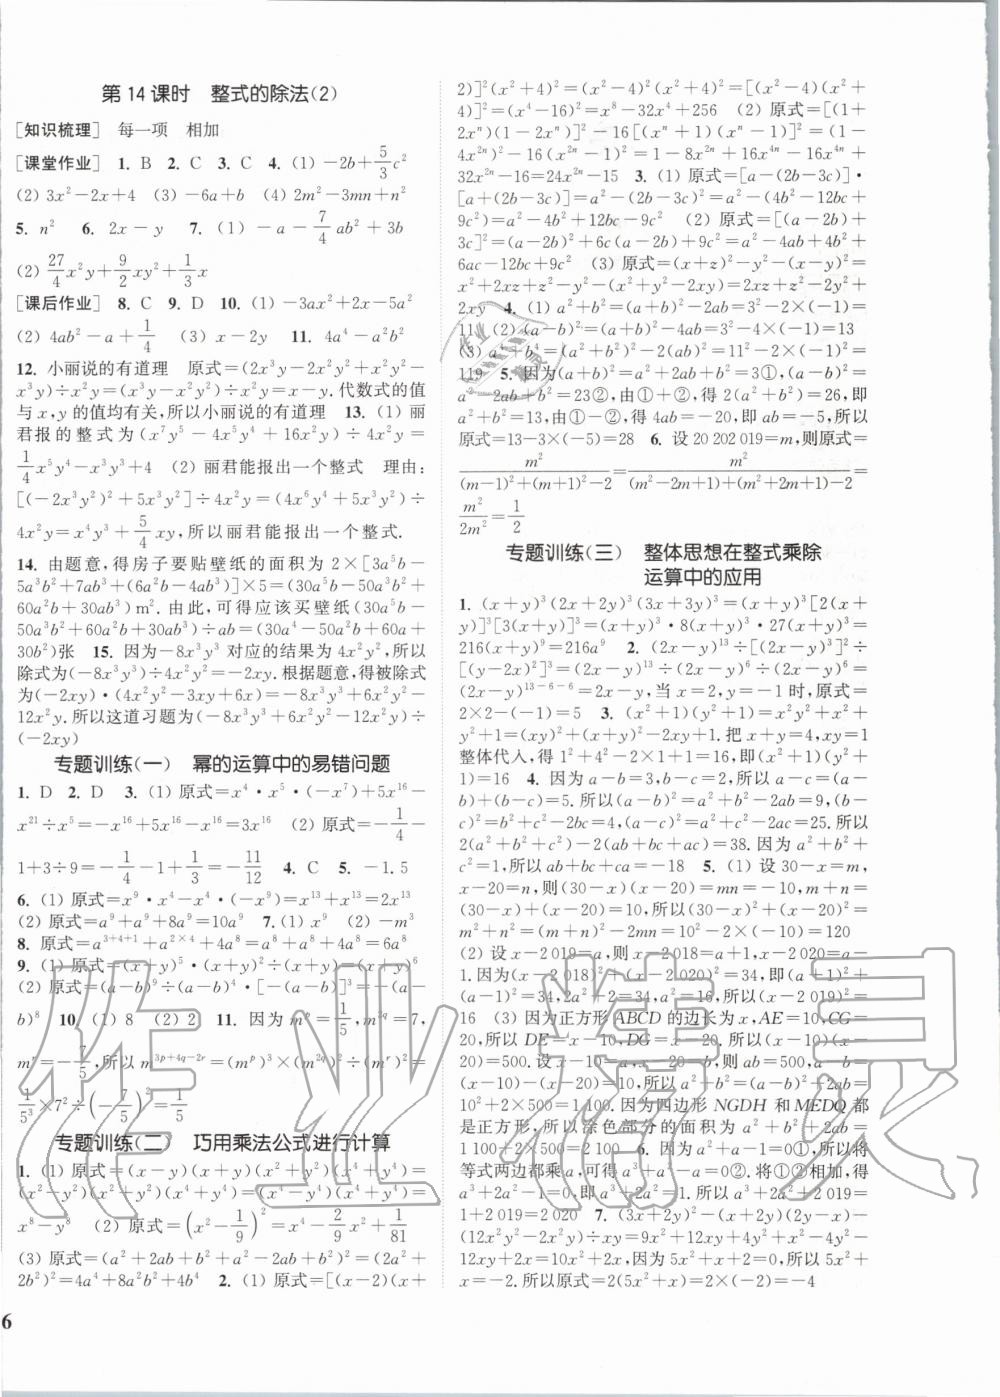 第 14 课时　整式的除法(2)
[知识梳理]　每一项　相加
[课堂作业]　1. B　2. C　3. C　4. (1) －2b＋5/3c²
(2) 3x²－2x＋4　(3) －6a＋b　(4) 2m²－3mn＋n²
5. n²　6. 2x－y　7. (1) －a－7/4ab²＋3b
(2) 27/4x²y＋9/2xy²＋1/3x
[课后作业]　8. C　9. D　10. (1) －3ax²＋2x－5a²
(2) 4ab²－a＋1/4　(3) x－2y　11. 4a⁴－a²b²
12. 小丽说的有道理　原式＝(2x³y－2x²y²＋x²y²－
x³y)÷x²y＝(x³y－x²y²)÷x²y＝x－y. 代数式的值
与 x,y 的值均有关,所以小丽说的有道理　13. (1) 丽
君报的整式为(x⁷y⁵－4x⁵y⁴＋16x²y)÷4x²y＝
1/4x⁵y⁴－x³y³＋4　(2) 丽君能报出一个整式　理由:
[(－2x³y²)²＋5x³y²]÷4x²y＝(4x⁶y⁴＋5x³y²)÷
4x²y＝x⁴y³＋5/4xy,所以丽君能报出一个整式.
14. 由题意,得房子要贴壁纸的面积为 2×[3a⁵b－
5a³b²＋7a²b²＋(6a²b－4ab³)]×5＝(30a⁵b－50a³b²＋
60a²b²＋30ab³)m². 由此,可得应该买壁纸(30a⁵b－
50a³b²＋60a²b²＋30ab³)÷ab＝(30a⁴－50a²b＋60ab＋
30b²)张　15. 因为－8x³y³ 对应的结果为 4x²y²,所以
除式为(－8x³y³)÷4x²y²＝－2xy. 根据题意,得被除式为
(－2xy)·(4x²y²－3xy＋6x)＝－8x³y³＋6x²y²－
12x²y. 所以这道习题为(－8x³y³＋6x²y²－12x²y)÷
(－2xy)
专题训练(一)　幂的运算中的易错问题
1. D　2. D　3. (1) 原式＝x⁴·x⁵·(－x⁷)＋5x¹⁶－
x²¹÷x⁵＝－x¹⁶＋5x¹⁶－x¹⁶＝3x¹⁶　(2) 原式＝－1/4－
1＋3÷9＝－1/4－1＋1/3＝－11/12　4. C　5. －1.5
6. (1) 原式＝x⁹·x⁴－x⁴·(－x⁹)＝x¹³＋x¹³＝2x¹³
(2) 原式＝a⁹＋a⁹＋8a⁹＝10a⁹　7. (1) x⁹　(2) －m³
8. 原式＝a³⁺⁴⁺¹＋a²ˣ⁴＋4a⁸＝a⁸＋a⁸＋4a⁸＝6a⁸
9. (1) 原式＝(x＋y)⁵·(x＋y)²÷(x＋y)＝(x＋y)⁶
(2) 原式＝(a－b)⁹÷(a－b)⁴·[－(a－b)³]＝－(a－
b)⁸　10. (1) 8　(2) 2　11. 因为 mᵖ＝1/5,m²q＝7,
mʳ＝－7/5,所以 m³ᵖ⁺⁴q⁻²ʳ＝(mᵖ)³×(m²q)²÷(mʳ)²＝
1/5³×7²÷(－7/5)²＝1/5
专题训练(二)　巧用乘法公式进行计算
1. (1) 原式＝(x－y)(x＋y)(x²＋y²)(x⁴＋y⁴)＝
(x²－y²)(x²＋y²)(x⁴＋y⁴)＝(x⁴－y⁴)(x⁴＋y⁴)＝
x⁸－y⁸　(2) 原式＝(x²－1/9)²＝x⁴－2/9x²＋1/81
(3) 原式＝(a²＋2ab＋b²＋a²－2ab＋b²)²＝(2a²＋
2b²)²＝4a⁴＋8a²b²＋4b⁴　2. (1) 原式＝[(x－2)(x＋
2)]²(x²＋4)²＝(x²－4)²(x²＋4)²＝[(x²－4)(x²＋
4)]²＝(x⁴－16)²＝x⁸－32x⁴＋256　(2) 原式＝[(1＋
2xⁿ)(1－2xⁿ)]²－16[(xⁿ＋1)(xⁿ－1)]²＝(1－
4x²ⁿ)²－16(x²ⁿ－1)²＝1－8x²ⁿ＋16x⁴ⁿ－16x⁴ⁿ＋
32x²ⁿ－16＝24x²ⁿ－15　3. (1) 原式＝[a－(2b－3c)]·
[a＋(2b－3c)]＝a²－(2b－3c)²＝a²－(4b²－12bc＋
9c²)＝a²－4b²＋12bc－9c²　(2) 原式＝[(a－2b)＋
3c]²＝(a－2b)²＋6c(a－2b)＋9c²＝a²－4ab＋4b²＋
6ac－12bc＋9c²　(3) 原式＝(x＋z)²－y²－(x－y)²＝
x²＋2xz＋z²－y²－(x²＋y²－2xy)＝2xz＋z²－2y²＋
2xy　4. (1) a²＋b²＝(a－b)²＋2ab＝3²－2×(－1)＝
11　(2) (a－b)²＝(a²＋b²)－2ab＝3²－4×(－1)＝13
(3) a⁴＋b⁴＝(a²＋b²)²－2(ab)²＝11²－2×(－1)²＝
119　5. 因为(a＋b)²＝a²＋2ab＋b²＝3①,(a－b)²＝
a²－2ab＋b²＝23②,由①＋②,得 2(a²＋b²)＝26,即
a²＋b²＝13,由①－②,得 4ab＝－20,即 ab＝－5,所以
原式＝13－3×(－5)＝28　6. 设 20 202 019＝m,则原式＝
m²/((m－1)²＋(m＋1)²－2)＝m²/((m²－2m＋1)＋(m²＋2m＋1)－2)＝
m²/2m²＝1/2
专题训练(三)　整体思想在整式乘除
运算中的应用
1. (x＋y)³(2x＋2y)³(3x＋3y)³＝(x＋y)³[2(x＋
y)]³[3(x＋y)]³＝(x＋y)³·8(x＋y)³·27(x＋y)³＝
216(x＋y)⁹＝216a⁹　2. (2x－y)¹³÷[(2x－y)³]²÷
[(y－2x)²]³＝(2x－y)¹³÷(2x－y)⁶÷(2x－y)⁶＝
(2x－y)¹³⁻⁶⁻⁶＝2x－y,当 x＝2,y＝－1 时,原式＝
2×2－(－1)＝5　3. (x²＋1)(y²＋1)＝x²y²＋x²＋
y²＋1＝(xy)²＋(x＋y)²－2xy＋1. 把 x＋y＝4,xy＝1
整体代入,得 1²＋4²－2×1＋1＝16,即(x²＋1)(y²＋
1)＝16　4. 因为 a－b＝3,b－c＝2,所以 a－c＝(a－
b)＋(b－c)＝5. 所以(a－b)²＝a²＋b²－2ab＝9,(b－
c)²＝b²＋c²－2bc＝4,(a－c)²＝a²＋c²－2ac＝25. 所以
2(a²＋b²＋c²)－2(ab＋bc＋ac)＝38. 因为 a²＋b²＋
c²＝1,所以 ab＋bc＋ca＝－18　5. (1) 设 30－x＝m,
x－20＝n,则(30－x)(x－20)＝mn＝－10,m＋n＝
(30－x)＋(x－20)＝10,所以(30－x)²＋(x－20)²＝
m²＋n²＝(m＋n)²－2mn＝10²－2×(－10)＝120
(2) 设 x－2 019＝a,则 x－2 018＝a＋1,x－2 020＝a－
1. 因为(x－2 018)²＋(x－2 020)²＝34,所以(a＋1)²＋
(a－1)²＝34,所以 2a²＋2＝34,a²＝16,所以(x－2 019)²＝
16　(3) 因为正方形 ABCD 的边长为 x,AE＝10,CG＝
20,所以 DE＝x－10,DG＝x－20. 所以(x－10)(x－
20)＝500. 设 x－10＝a,x－20＝b,则 ab＝500,a－b＝
(x－10)－(x－20)＝10. 所以 a²＋b²＝(a－b)²＋2ab＝
10²＋2×500＝1 100. 因为四边形 NGDH 和 MEDQ 都
是正方形,所以涂色部分的面积为 a²＋b²＋2ab＝
1 100＋2×500＝2 100　6. 因为 a²＋a－1＝0①,所以将
等式两边都乘 a,可得 a³＋a²－a＝0②. 将①②相加,得
a³＋2a²－1＝0,即 a³＋2a²＝1. 所以 a³＋2a²＋2 019＝
1＋2 019＝2 020　7. (3x＋2y)(2y－3x)－
(12x²y－20xy²)÷xy＝9x²＋12xy＋4y²＋x²－4y²－
12xy＋20x＝10x²＋20x. 因为 5x²＋2x＋2＝0,所以 5x²＋
x＝－2. 所以原式＝2(5x²＋x)＝2×(－2)＝－4
6